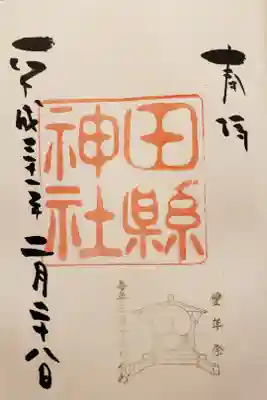 奉拝
田縣
神社
豊年祭
平成二十一年二月二十八日